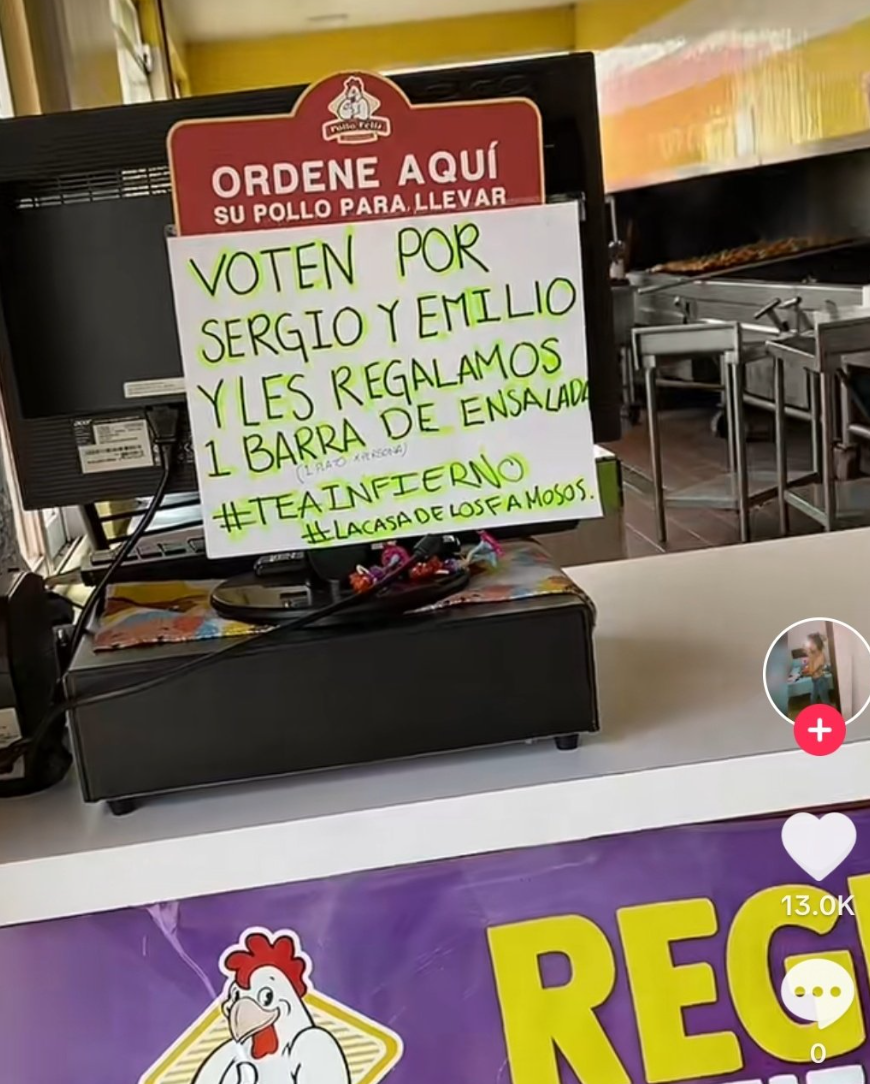 Pollo Feliz
ORDENE AQUÍ
SU POLLO PARA LLEVAR
VOTEN POR
SERGIO Y EMILIO
Y LES REGALAMOS
1 BARRA DE ENSALADA
(1 PLATO X PERSONA)
#TEAINFIERNO
#LACASADELOSFAMOSOS.
acer
13.0K
REG
0